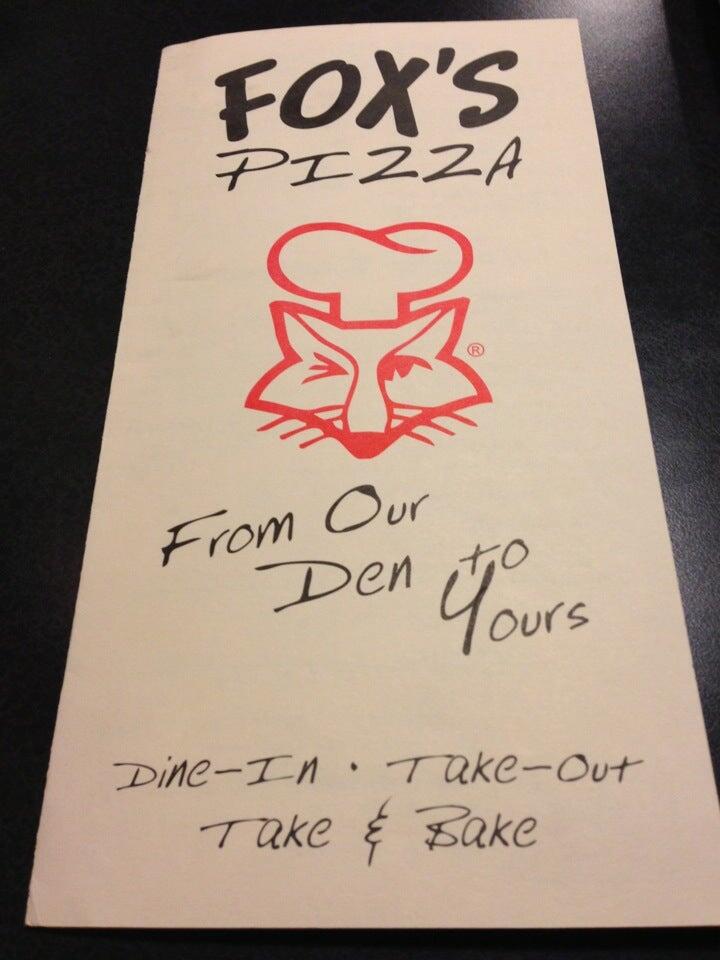 FOX'S
PIZZA
®
From Our
Den to
Yours
Dine-In · Take-Out
Take & Bake